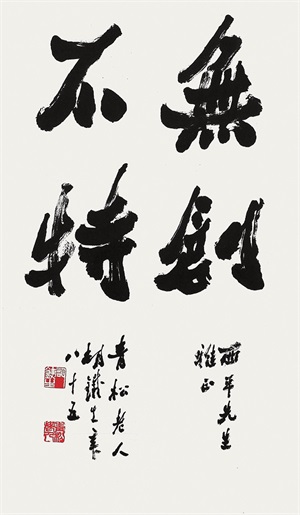 無創
不特
西平先生
雅正
青松老人
胡鐵生年
八十五